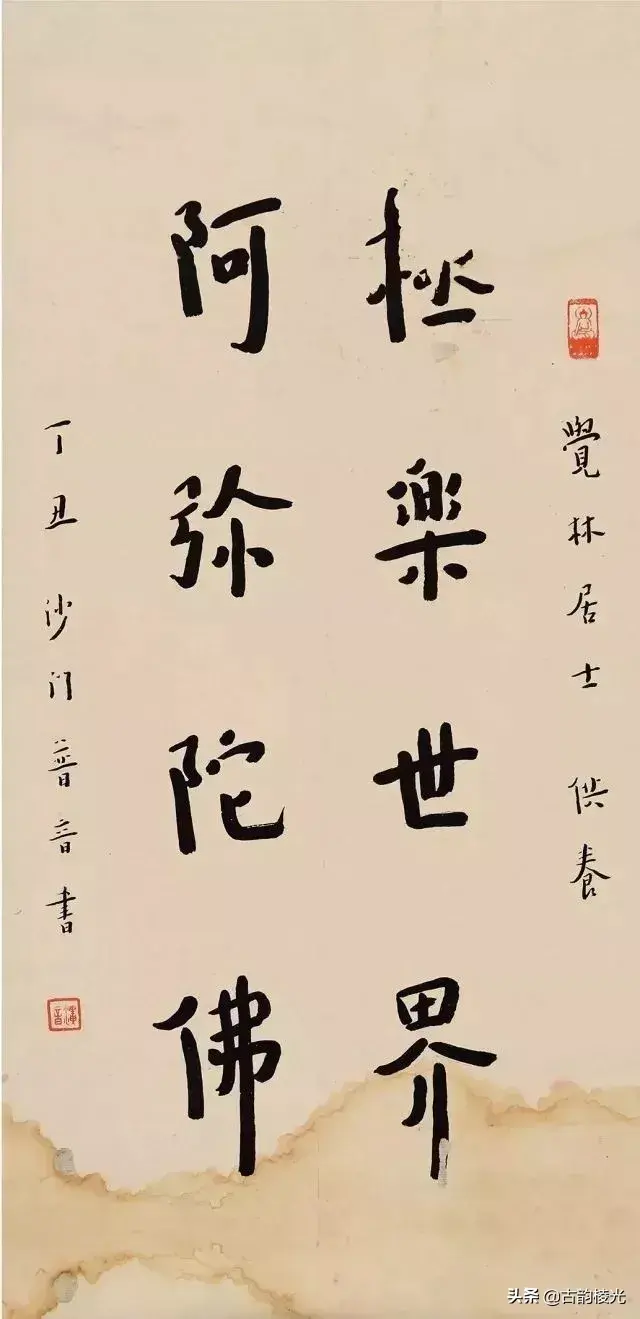 覺林居士 供養
極樂世界
阿弥陀佛
丁丑沙门普音書
头条 @古韵棱光